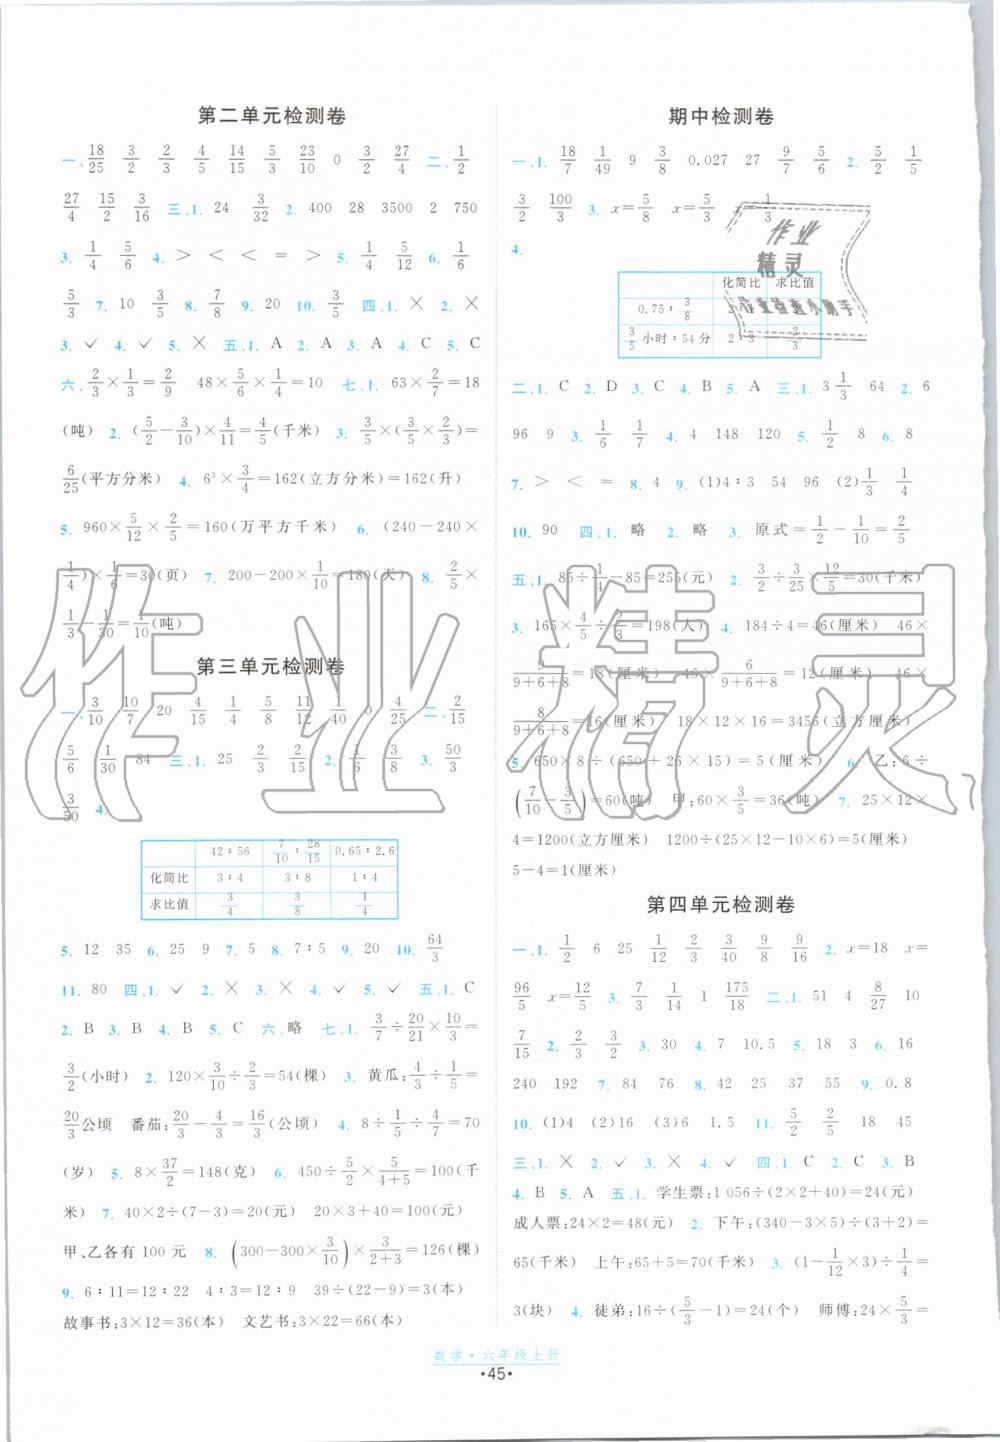 第二单元检测卷
一、18/25 3/2 2/3 4/5 14/15 5/3 23/10 0 3/2 27/4 二、1/2
27/4 15/2 3/16 三、1. 24 3/32 2. 400 28 3500 2 750
3. 1/4 5/6 4. > < < = > 5. 1/4 5/12 6. 1/6
5/3 7. 10 3/5 8. 7/8 9. 20 10. 3/5 四、1. × 2. ×
3. ✓ 4. ✓ 5. × 五、1. A 2. A 3. A 4. C 5. C
六、2/3×1/3=2/9 48×5/6×1/4=10 七、1. 63×2/7=18
(吨) 2. (5/2-3/10)×4/11=4/5(千米) 3. 3/5×(3/5×2/3)=
6/25(平方分米) 4. 6³×3/4=162(立方分米)=162(升)
5. 960×5/12×2/5=160(万平方千米) 6. (240-240×
1/4)×1/6=30(页) 7. 200-200×1/10=180(天) 8. 2/5×
1/3-1/30=1/10(吨)
第三单元检测卷
一、3/10 10/7 20 4/15 1/4 5/8 11/12 1/40 0 4/25 二、2/15
5/6 1/30 84 三、1. 25 2/3 2/15 2. 1/6 3/8 3. 50/3
3/50 4.
42∶56 7/10∶28/15 0.65∶2.6
化简比 3∶4 3∶8 1∶4
求比值 3/4 3/8 1/4
5. 12 35 6. 25 9 7. 5 8. 7∶5 9. 20 10. 64/3
11. 80 四、1. ✓ 2. × 3. × 4. ✓ 5. ✓ 五、1. C
2. B 3. B 4. B 5. C 六、略 七、1. 3/7÷20/21×10/3=
3/2(小时) 2. 120×3/10÷2/3=54(棵) 3. 黄瓜:4/3÷1/5=
20/3公顷 番茄:20/3-4/3=16/3(公顷) 4. 8÷1/5÷4/7=70
(岁) 5. 8×37/2=148(克) 6. 450÷5/2×5/(4+5)=100(千
米) 7. 40×2÷(7-3)=20(元) 20×3+40=100(元)
甲、乙各有 100 元 8. (300-300×3/10)×3/(2+3)=126(棵)
9. 6∶11=12∶22 4∶3=12∶9 39÷(22-9)=3(本)
故事书:3×12=36(本) 文艺书:3×22=66(本)
期中检测卷
一、1. 18/7 1/49 9 3/8 0.027 27 9/7 5/6 2. 5/2 1/5
3/2 100/3 3. x=5/8 x=5/3 x=1/3
4.
化简比 求比值
0.75∶3/8
3/5小时∶54分 2∶3 2/3
作业
精灵
二、1. C 2. D 3. C 4. B 5. A 三、1. 3 1/3 64 2. 6
96 9 3. 1/6 1/7 4. 4 148 120 5. 1/2 8 6. 8
7. > < = 8. 4 9. (1)4∶3 54 96 (2)1/3 1/4
10. 90 四、1. 略 2. 略 3. 原式=1/2-1/10=2/5
五、1. 85÷1/4-85=255(元) 2. 3/2÷3/25×12/5=30(千米)
3. 165×4/5÷2/3=198(人) 4. 184÷4=46(厘米) 46×
9/(9+6+8)=18(厘米) 46×6/(9+6+8)=12(厘米) 46×
8/(9+6+8)=16(厘米) 18×12×16=3456(立方厘米)
5. 650×8÷(650+26×15)=5(厘米) 6. 乙:6÷
(7/10-3/5)=60(吨) 甲:60×3/5=36(吨) 7. 25×12×
4=1200(立方厘米) 1200÷(25×12-10×6)=5(厘米)
5-4=1(厘米)
第四单元检测卷
一、1. 1/2 6 25 1/12 2/3 3/40 9/8 9/16 2. x=18 x=
96/5 x=12/5 3. 7/3 1/14 1 175/18 二、1. 51 4 8/27 10
7/15 2. 2/3 3/2 3. 30 4. 7 10.5 5. 18 3 6. 16
240 192 7. 84 76 8. 42 25 37 55 9. 0.8
10. (1)4 (2)16 (3)6 1.5 11. 5/2 2/5 18 45
三、1. × 2. ✓ 3. ✓ 4. ✓ 四、1. C 2. C 3. B
4. B 5. A 五、1. 学生票:1 056÷(2×2+40)=24(元)
成人票:24×2=48(元) 2. 下午:(340-3×5)÷(3+2)=
65(千米) 上午:65+5=70(千米) 3. (1-1/12×3)÷1/4=
3(块) 4. 徒弟:16÷(5/3-1)=24(个) 师傅:24×5/3=
数学·六年级上册
·45·
作业精灵